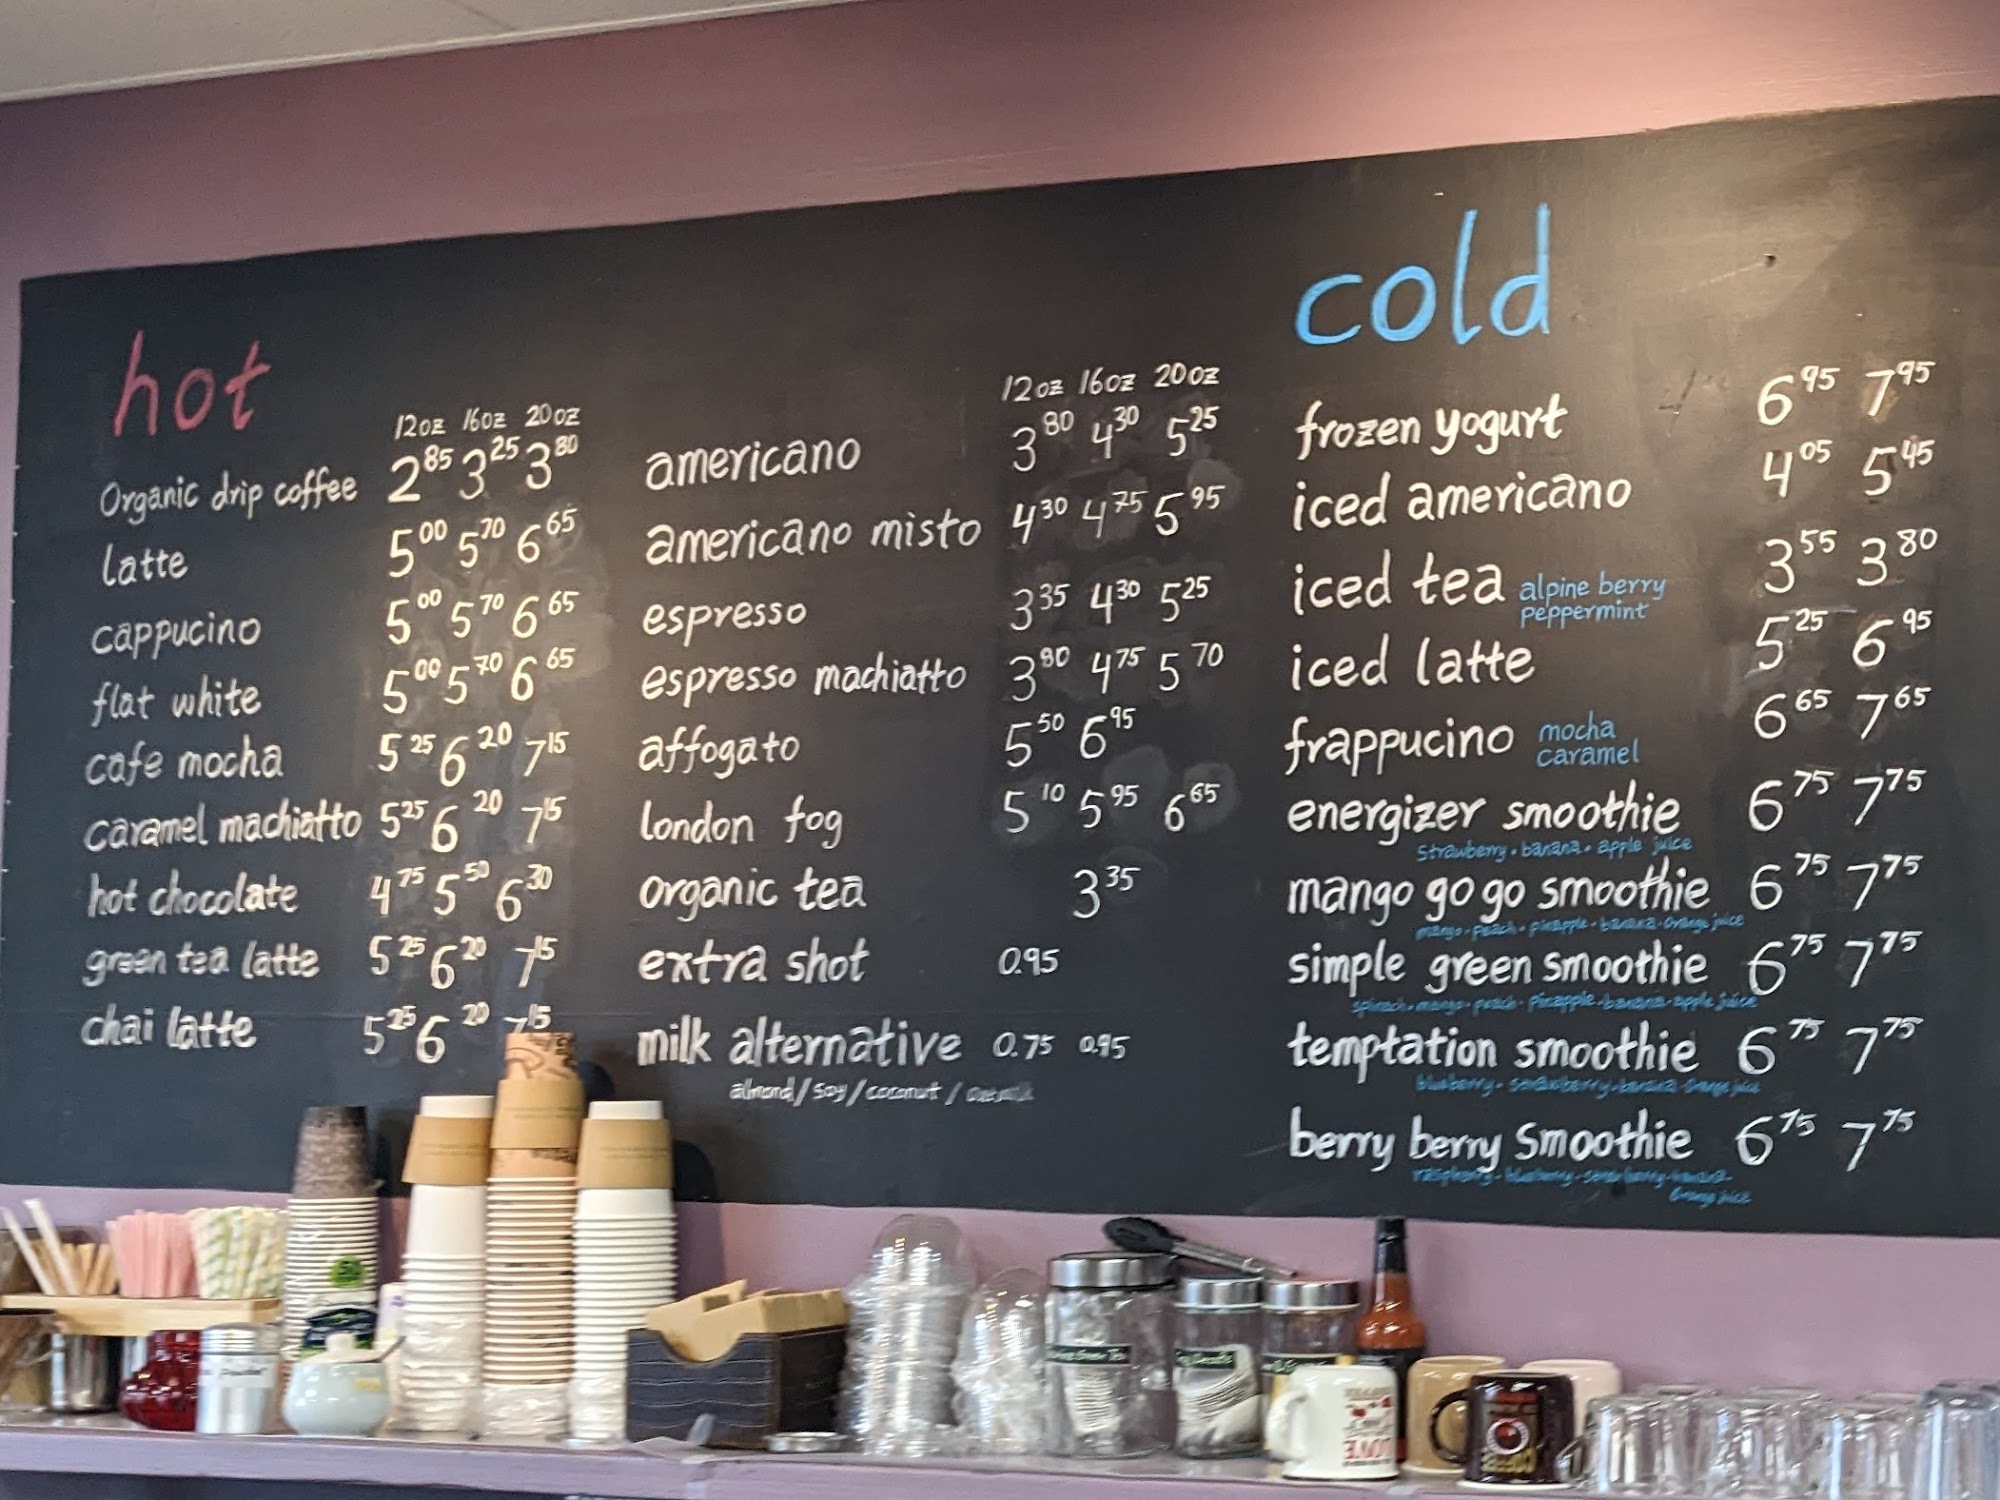 hot
12oz 16oz 20oz
Organic drip coffee 2.85 3.25 3.80
latte 5.00 5.70 6.65
cappucino 5.00 5.70 6.65
flat white 5.00 5.70 6.65
cafe mocha 5.25 6.20 7.15
caramel machiatto 5.25 6.20 7.15
hot chocolate 4.75 5.50 6.30
green tea latte 5.25 6.20 7.15
chai latte 5.25 6.20 7.15
12oz 16oz 20oz
americano 3.80 4.30 5.25
americano misto 4.30 4.75 5.95
espresso 3.35 4.30 5.25
espresso machiatto 3.80 4.75 5.70
affogato 5.50 6.95
london fog 5.10 5.95 6.65
organic tea 3.35
extra shot 0.95
milk alternative 0.75 0.95
almond/soy/coconut/
cold
frozen yogurt 6.95 7.95
iced americano 4.05 5.45
iced tea alpine berry 3.55 3.80
peppermint
iced latte 5.25 6.95
frappucino mocha 6.65 7.65
caramel
energizer smoothie 6.75 7.75
strawberry. banana. apple juice
mango go go smoothie 6.75 7.75
mango. peach. pineapple. banana. orange juice
simple green smoothie 6.75 7.75
spinach. mango. peach. pineapple. banana. apple juice
temptation smoothie 6.75 7.75
blueberry. strawberry. banana. orange juice
berry berry smoothie 6.75 7.75
raspberry. blueberry. strawberry. banana.
orange juice